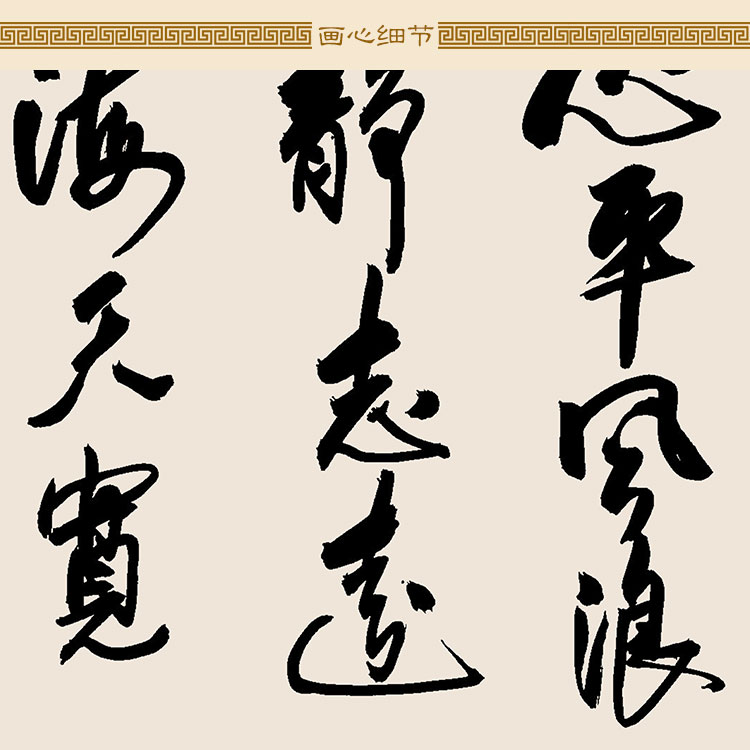 画心细节
心平风浪
静志远
海天宽